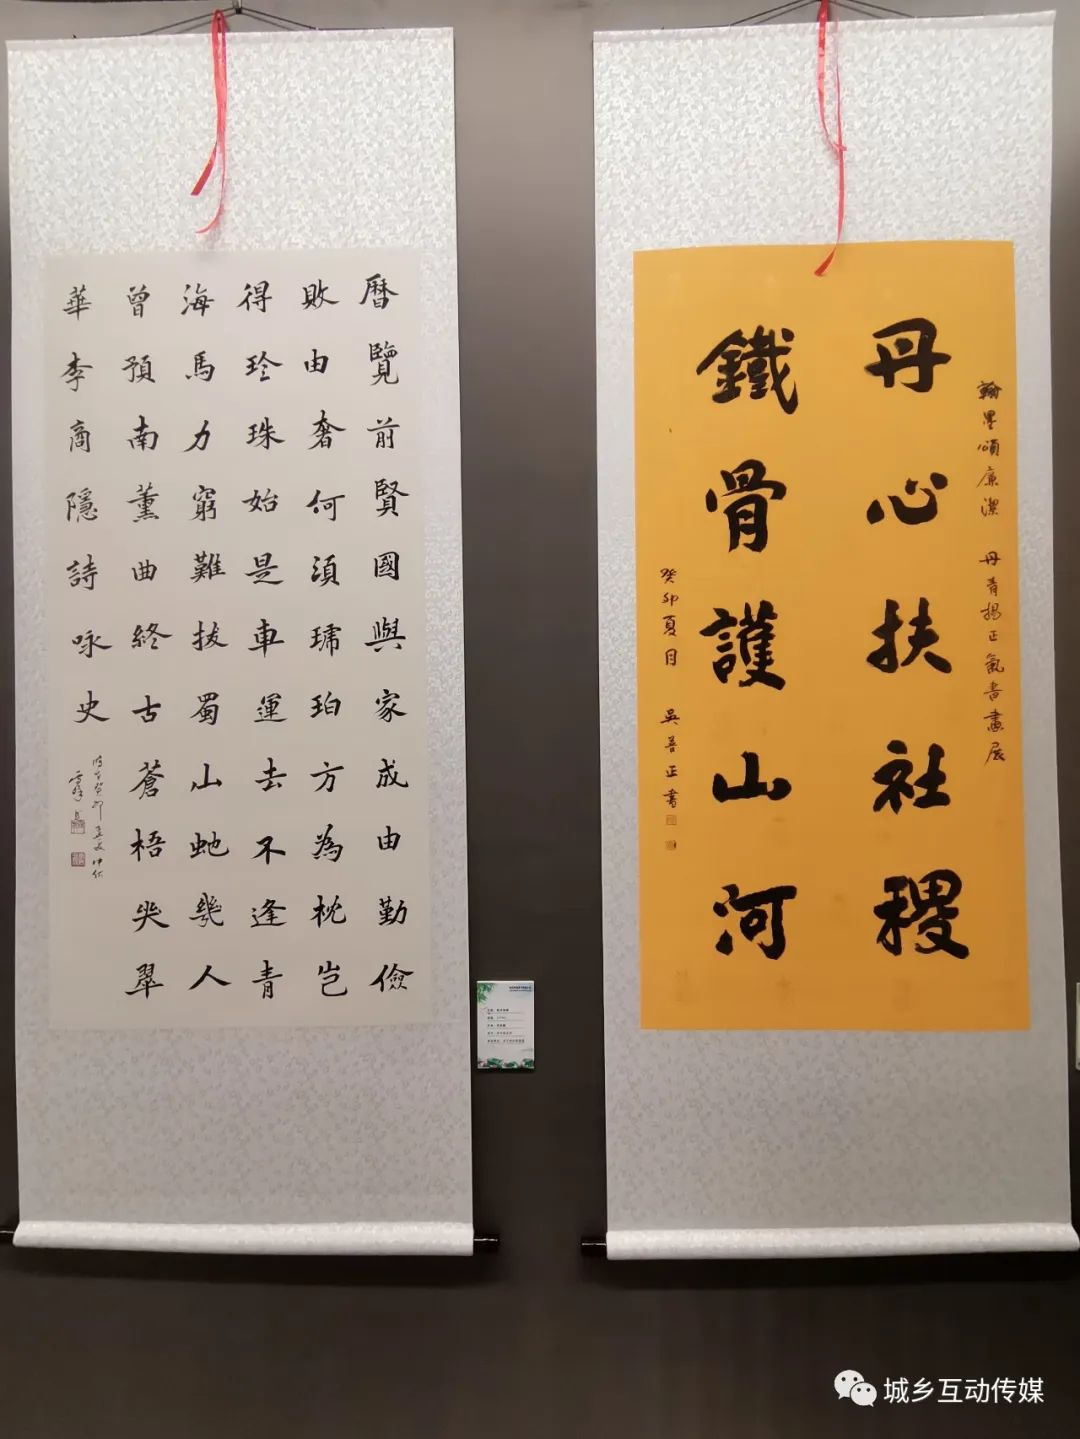 曆覽前賢國與家成由勤儉
敗由奢何須琥珀方為枕豈
得珍珠始是車運去不逢青
海馬力窮難拔蜀山虵幾人
曾預南薰曲終古蒼梧哭翠
華李商隱詩咏史
癸卯
翰墨頌廉潔 丹青揚正氣書畫展
丹心扶社稷
鐵骨護山河
癸卯夏月 吳善正書
城乡互动传媒